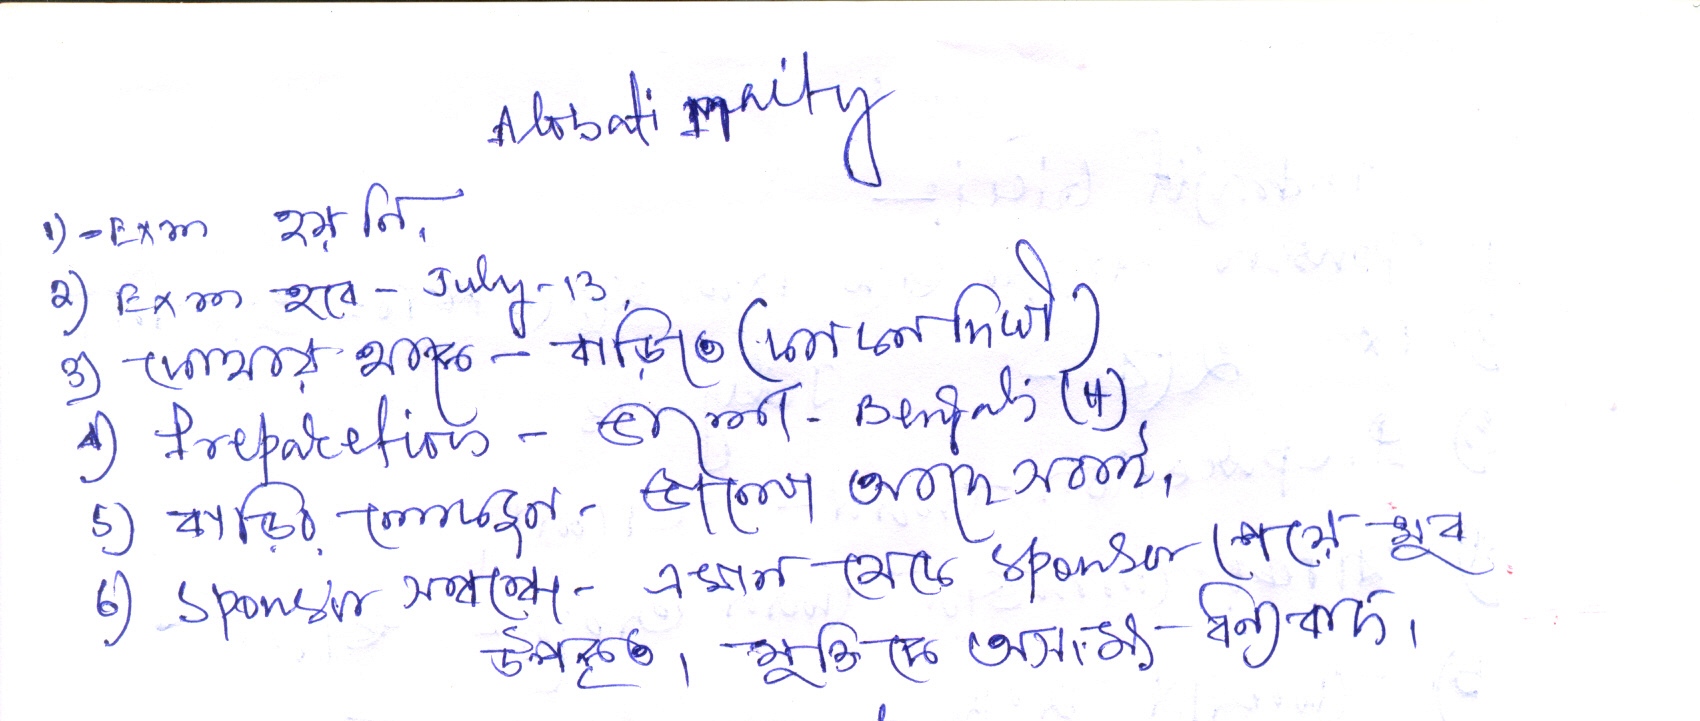 Alobati Maity
1) - Exam হয় নি,
2) Exam হবে - July - 13,
3) কোথায় থাকে - বাড়িতে ()
4) Preparetion - ভাল - Bengali (H)
5) বাড়ির লোকজন - ভালো আছে সবাই,
6) Sponsor সম্বন্ধে - এখান থেকে sponsor পেয়ে খুব
উপকৃত। মুক্তি কে অসংখ্য - ধন্যবাদ।